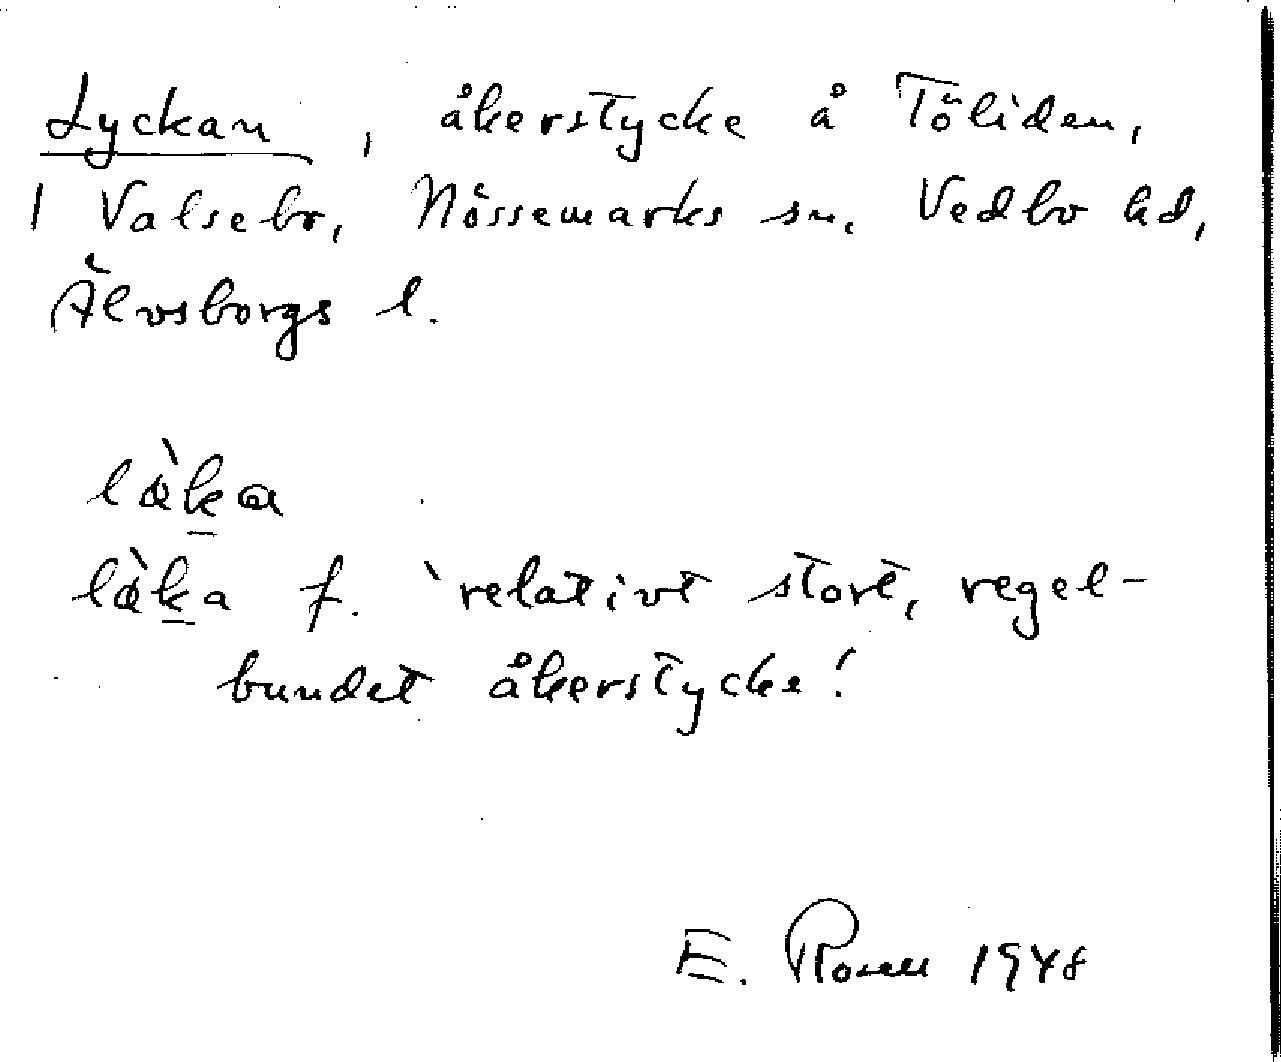 Lyckan, åkerstycke å Töliden,
1 Valsebo, Nössemarks sn. Vedbo hd,
Älvsborgs l.
lö̀ka
lö̀ka f. 'relativt stort, regel-
bundet åkerstycke'.
E. Rosell 1948